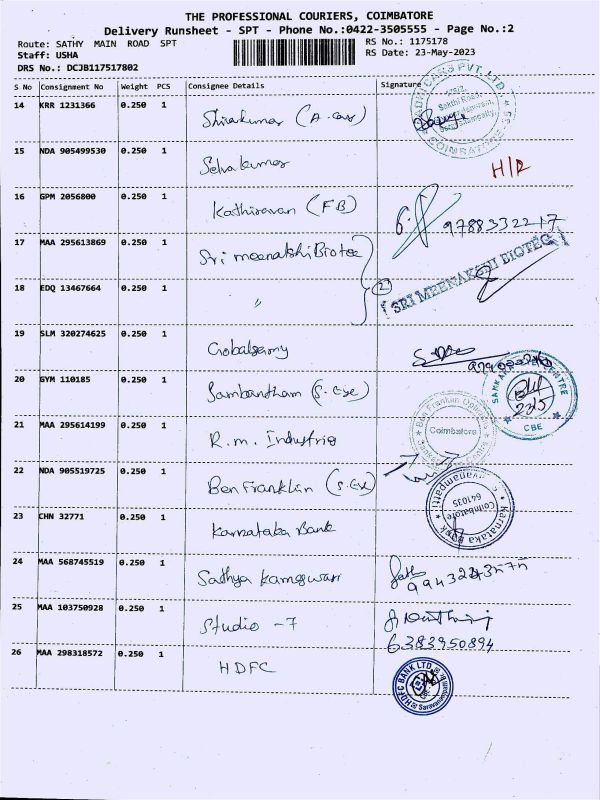 THE PROFESSIONAL COURIERS, COIMBATORE
Delivery Runsheet - SPT - Phone No.:0422-3505555 - Page No.:2
Route: SATHY MAIN ROAD SPT
RS No.: 1175178
Staff: USHA
RS Date: 23-May-2023
DRS No.: DCJB117517802
S No Consignment No Weight PCS Consignee Details Signature
14 KRR 1231366 0.250 1 Shivakumar (A. Cars)
CARS PVT. LTD
Sakthi Road,
COIMBATORE
15 NDA 905499530 0.250 1 Selvakumar
H/R
16 GPM 2056800 0.250 1 Kathiravan (FB) 9788332217
17 MAA 295613869 0.250 1 Sri meenakshi Biotec
18 EDQ 13467664 0.250 1 "
2
SRI MEENAKSHI BIOTEC
19 SLM 320274625 0.250 1
20 GYM 110185 0.250 1 Sambantham (S. Eye)
SANKARA CENTRE
23/5
CBE
21 MAA 295614199 0.250 1 R.m. Industrie
Ben Franklin Opticians
Coimbatore
22 NDA 905519725 0.250 1 Ben Franklin (S. Eye)
23 CHN 32771 0.250 1 Karnataka Bank
Karnataka Bank
Coimbatore
641035
24 MAA 568745519 0.250 1 Sathya Kameswari
25 MAA 103750928 0.250 1 Studio -7
6383950894
26 MAA 298318572 0.250 1 HDFC
HDFC BANK LTD
CBE
Saravanampatti